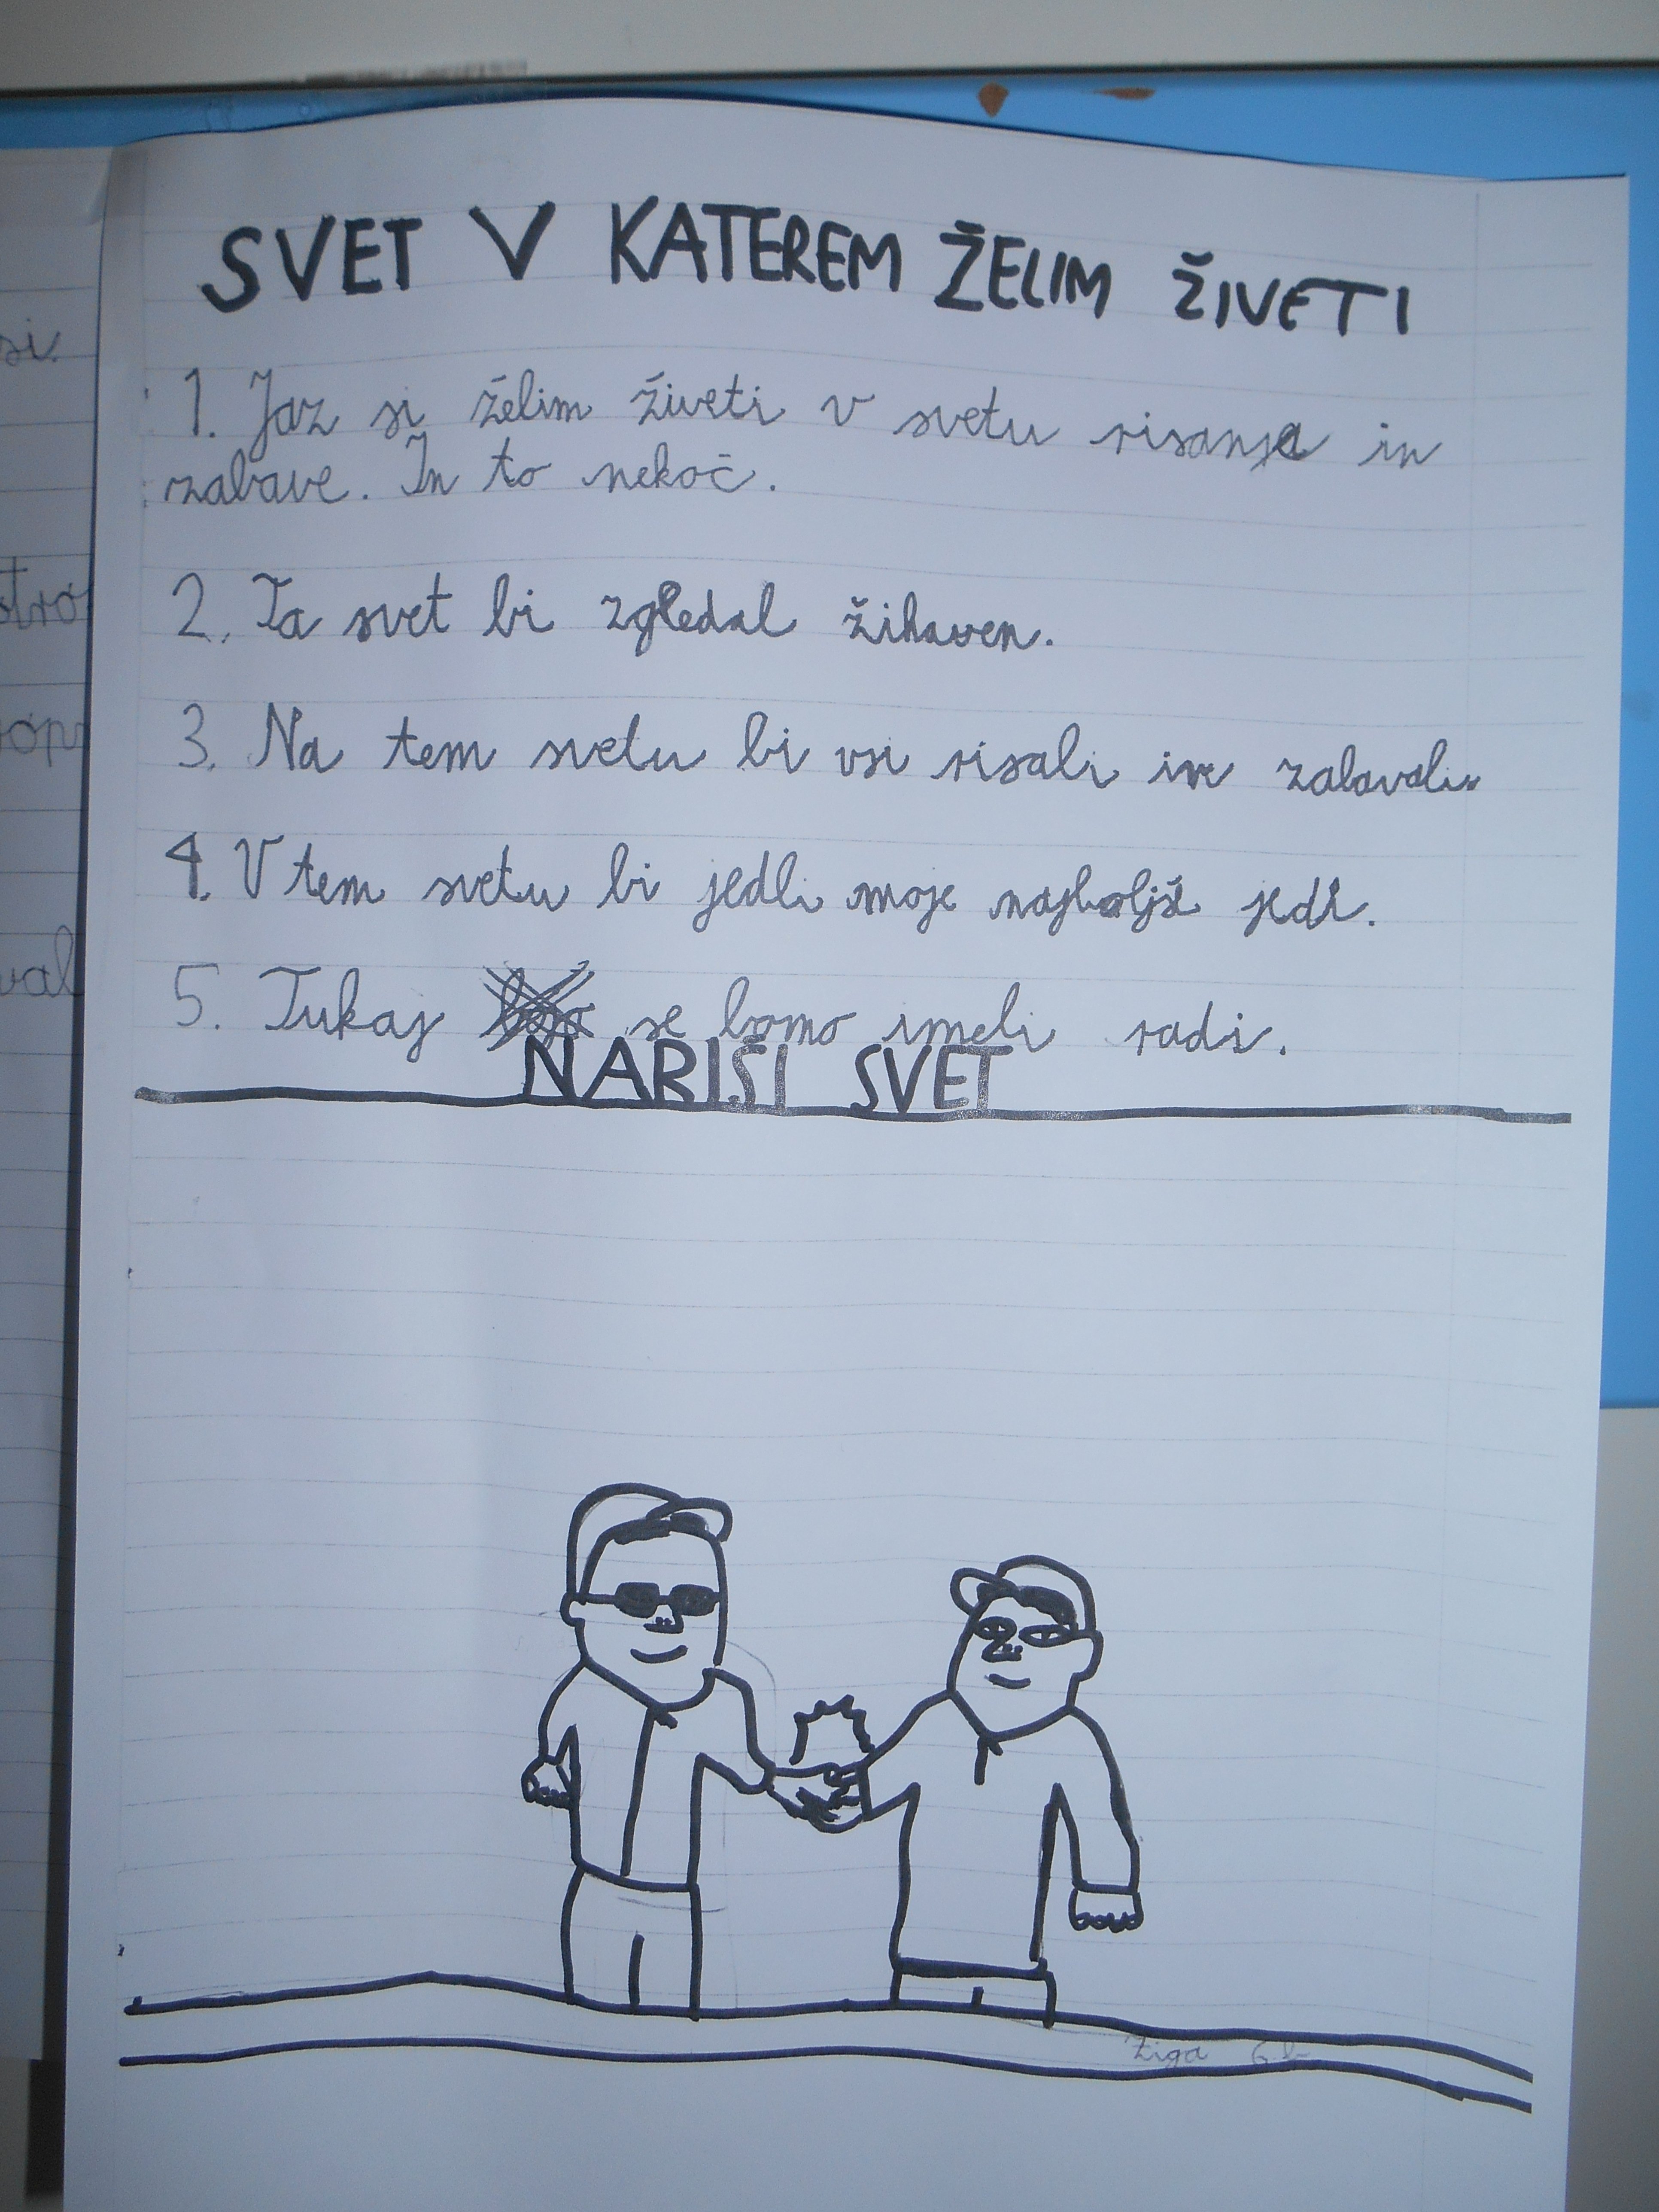 SVET V KATEREM ŽELIM ŽIVETI
1. Jaz si želim živeti v svetu risanja in
zabave. In to nekoč.
2. Ta svet bi zgledal žihaven.
3. Na tem svetu bi vsi risali in zabavali.
4. V tem svetu bi jedli moje najboljše jedi.
5. Tukaj se bomo imeli radi.
NARIŠI SVET
Žiga 6 b
si.
stro
op
val